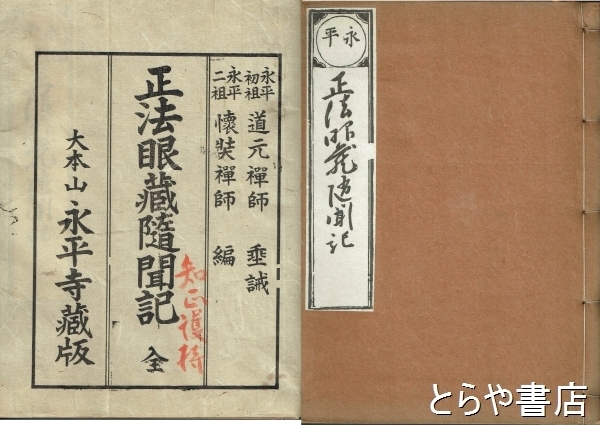 永平初祖 道元禪師 垂誡
永平二祖 懷奘禪師 編
正法眼藏隨聞記 全
知正護持
大本山 永平寺藏版
永平
正法眼蔵随聞記
とらや書店